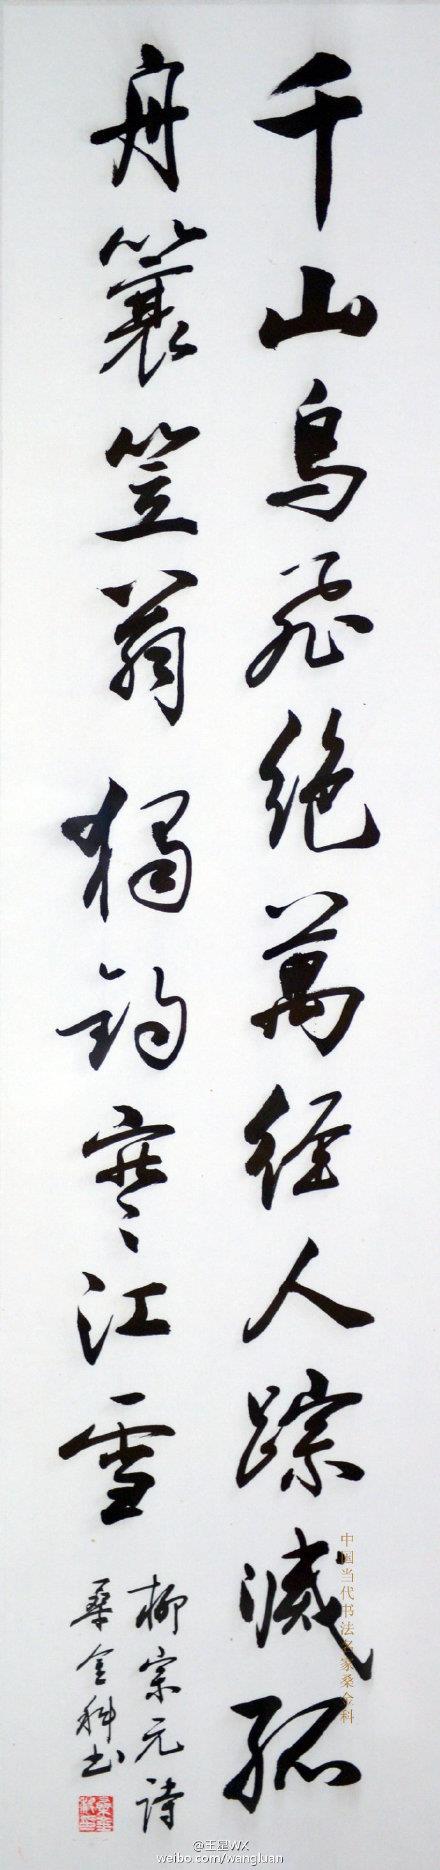 千山鳥飛絶萬径人踪滅孤
舟簑笠翁獨釣寒江雪
柳宗元詩
桑金科书
中国当代书法名家桑金科
@王星WX
weibo.com/wangluan